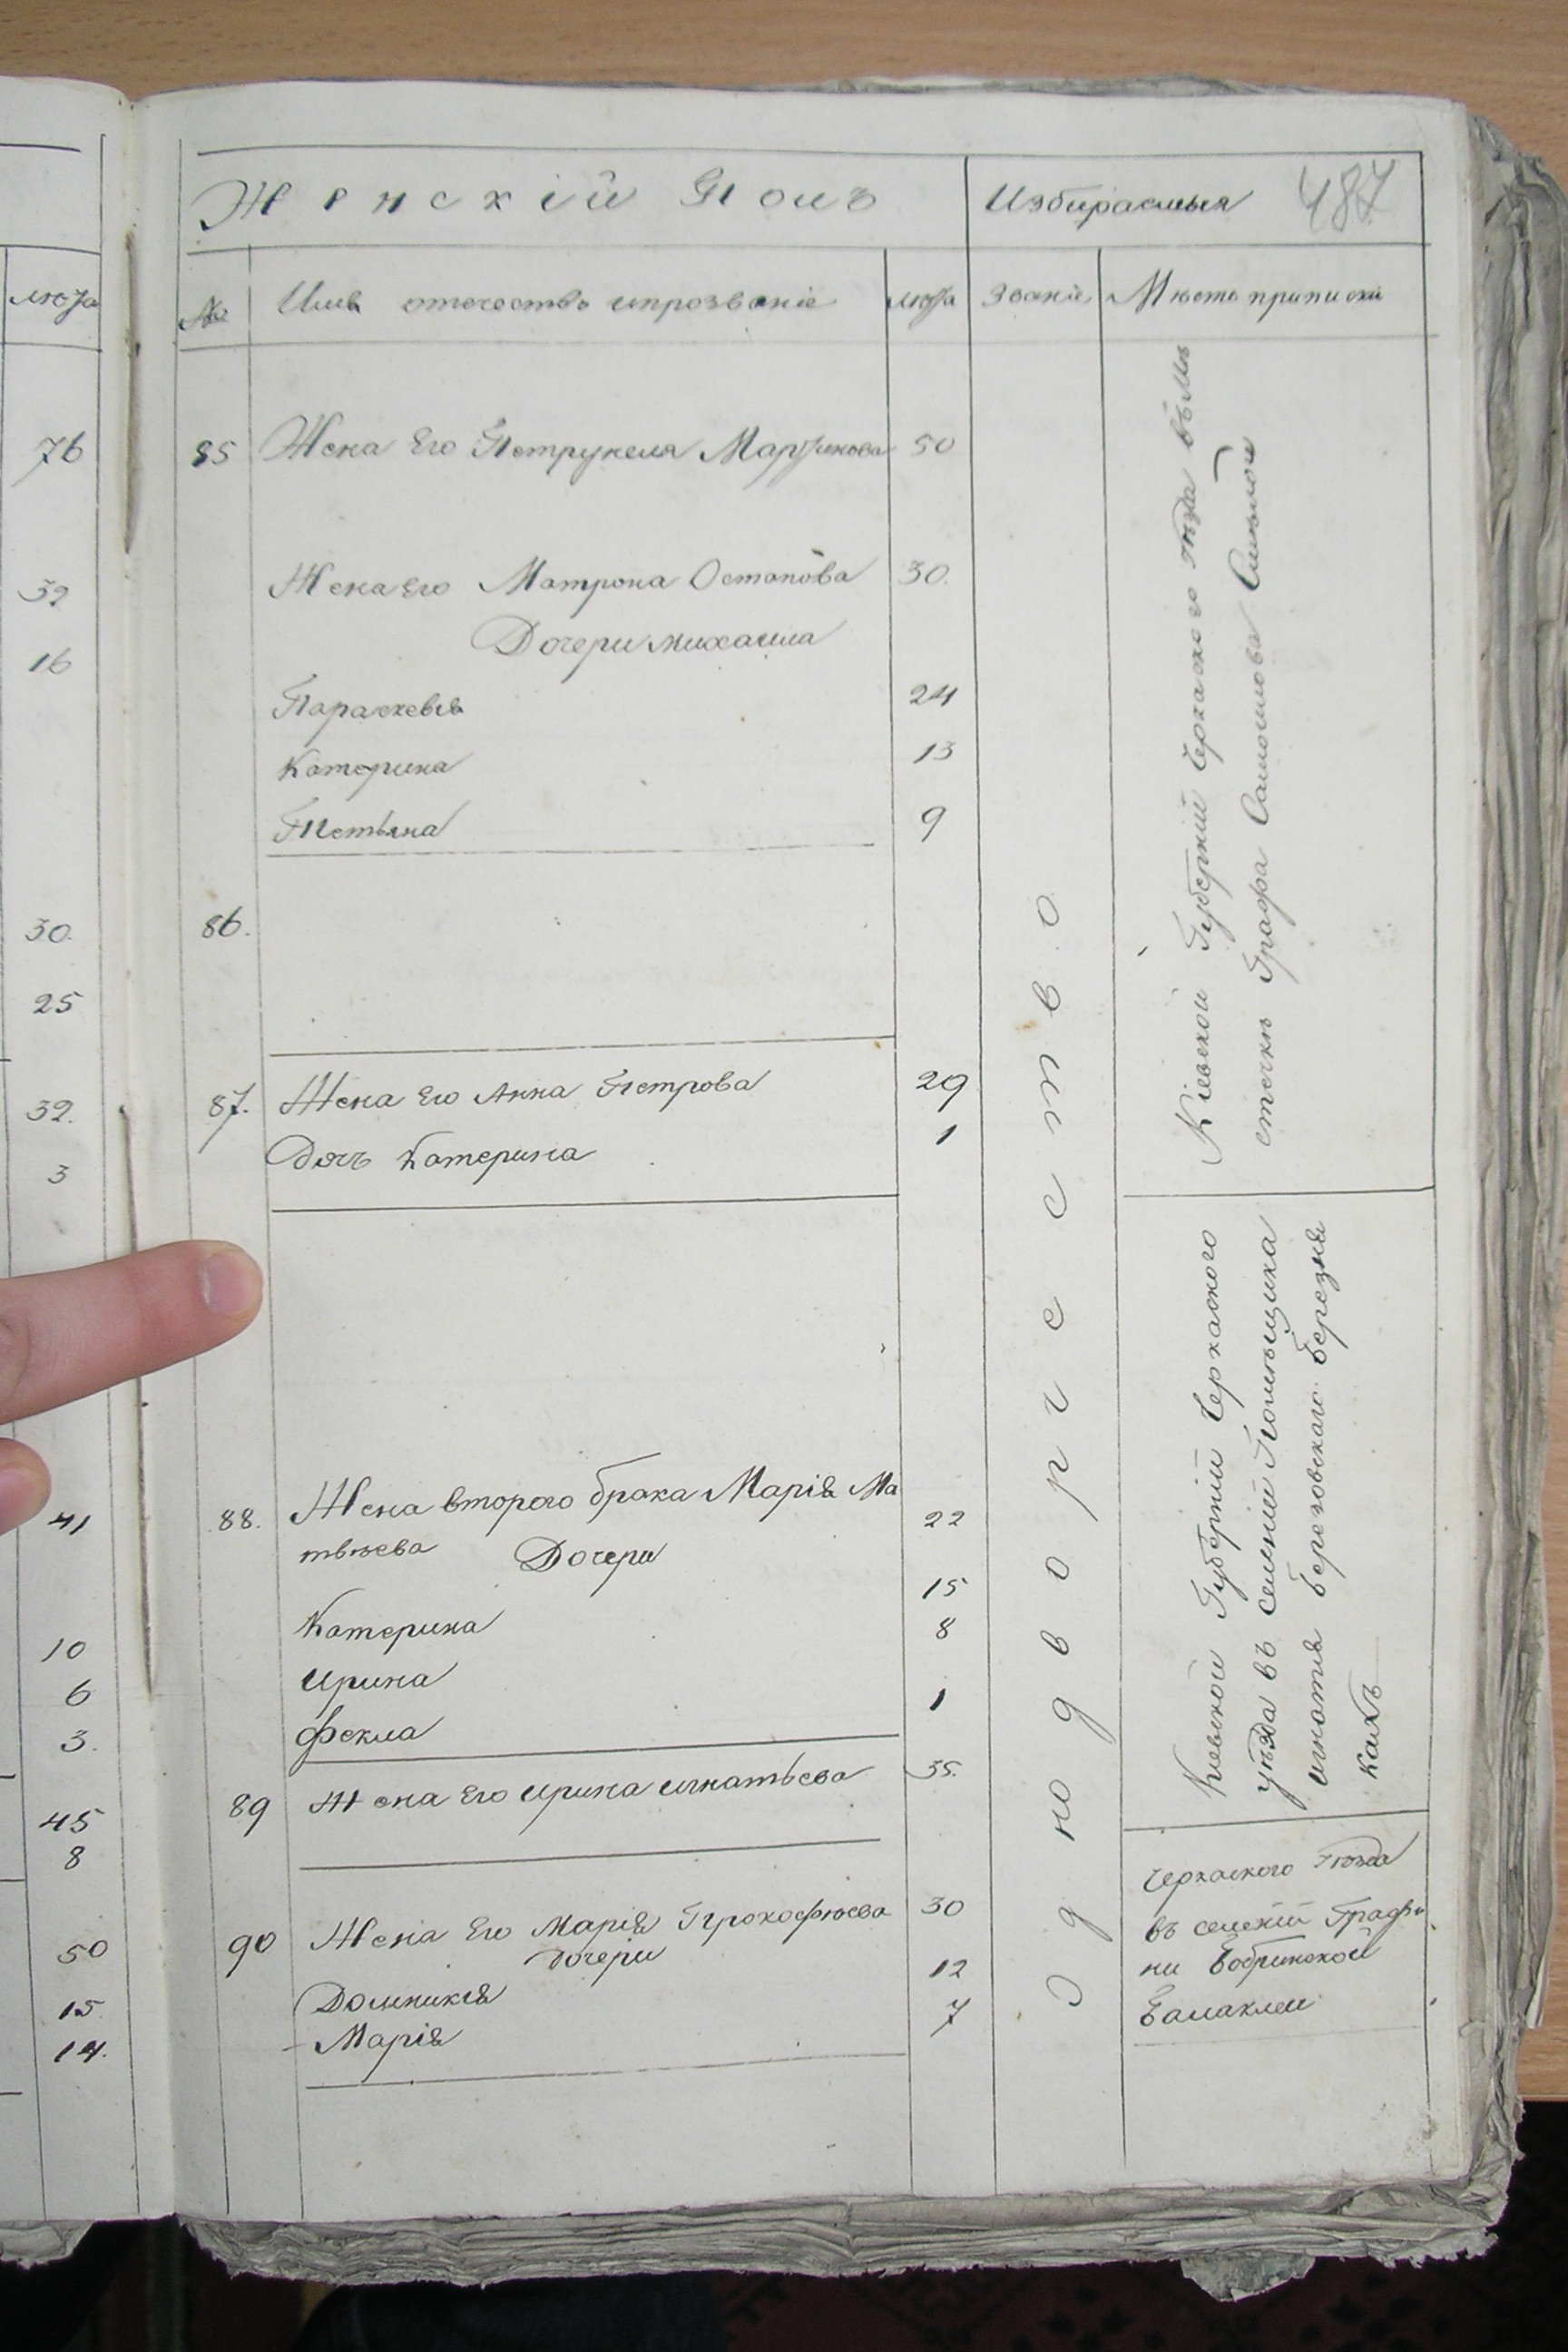 Женскій Полъ
Избираемыя
487
лѣта
№
Имя отечество ипрозваніе
лѣта
Званіе
Мѣсто приписки
76
85 Жена Его Петрунеля Мартинова 50
32
Жена Его Матрона Остапова 30.
Дочери михаила
16
Параскевія 24
Катерина 13
Тетьяна 9
30. 86.
25
32. 87. Жена Его Анна Петрова 29
3 Дочь Катерина 1
41 88. Жена второго брака Марія Ма
твѣева 22
Дочери
10 Катерина 15
6 Ирина 8
3. Фекла 1
45 89 Жена Его Ирина игнатьева 35.
8
50 90 Жена Его Марія Прокофѣева 30
дочери
15 Домникія 12
14. Марія 7
Однодворчество
Кіевской Губерніи Черкаского уѣзда въ мѣ
стечкѣ Графа Самойлова Смѣлой
Кіевской Губерніи Черкаского
уѣзда въ селеніи Помѣщика
игнатія Березовскаго Березня
кахъ
Черкаского уѣзда
въ селеніи Графи
ни Бобринской
Балаклеи